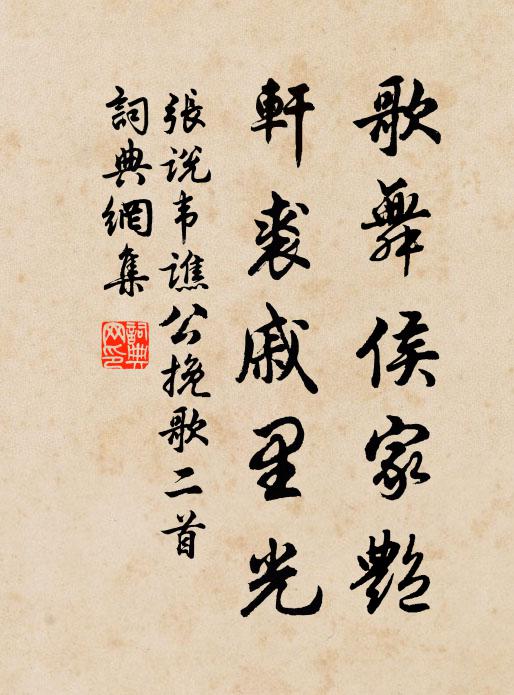 歌舞侯家艷
軒裘戚里光
張说韦譙公挽歌二首
詞典網集
詞典網印